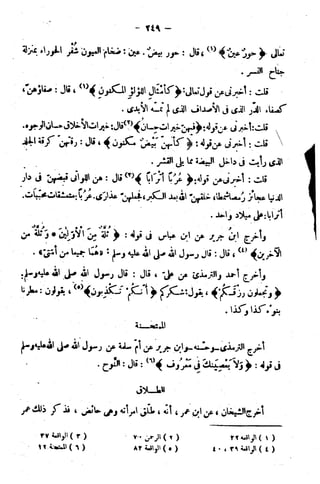 — ٢٤٩ —
تعالى ﴿ حورٌ عينٌ ﴾ (١) ، قال : حور بيضٌ . عين : ضخام العيون شُفْر الحوراء بمنزلة
جناح النسر .
قلت : أخبرنى عن قول تعالى : ﴿ كأمثَال اللؤلؤ المكنون ﴾ (١) ، قال : صفاؤهنّ،
كصفاء الدرّ الذى فى الأصداف الذى لم تمسه الأيدى .
قلت : أخبرنى عن قوله : ﴿ فيهنّ خيرات حِسان ﴾ (٢) قال : خيرات الأخلاق حسان الوجوه.
قلت : أخبرنى عن قوله : ﴿ كأنهنّ بَيْضٌ مكنون ﴾ ، قال : رقّتهنّ كرقّة الجلد
الذى رأيت فى داخل البيضة مما يلى القشر .
قلت : أخبرنى عن قوله : ﴿ عُرُبًا أَتْرابًا ﴾ (٣) قال : هن اللواتى قبضهنّ فى دار
الدنيا عجائز رُمصا شمطا، خلقهنّ الله بعد الكبر، فجعلهنّ عذارى. عُرُبًا : متعشقات محبّبات.
أترابا : على ميلاد واحد .
وأخرج ابن جرير عن ابن عباس فى قوله : ﴿ ثُلَّةٌ مِنَ الْأَوَّلِينَ * وَثُلَّةٌ من
الآخرين ﴾ (٤) ، قال : قال رسول الله صلى الله عليه وسلم : «هُما جميعا من أمّتى» .
وأخرج أحمد والترمذى عن علىّ ، قال : قال رسول الله صلى الله عليه وسلم:
﴿ وتجعلون رزقكم ﴾ ، يقول : شكركم ﴿ أَنّكُمْ تكذّبون ﴾ (٥) ، يقولون : مطرنا
بنوء كذا وكذا .
الممتحنة
أخرج الترمذى ـ وحسّنه ـ وابن جرير عن أمّ سلمة عن رسول الله صلى الله عليه وسلم
فى قوله : ﴿ وَلاَ يَعْصِينَكَ فِى مَعْرُوف ﴾ (٦) : قال : النَّوح .
الطلاق
أخرج الشيخان ، عن ابن عمر ، أنه ، طلّق امرأته وهى حائض ، فذكر ذلك عمر
( ١ ) الواقعة ٢٢ ( ٢ ) الرحمن ٧٠ ( ٣ ) الواقعة ٣٧
( ٤ ) الواقعة ٣٩ ، ٤٠ ( ٥ ) الواقعة ٨٢ ( ٦ ) الممتحنة ١٢